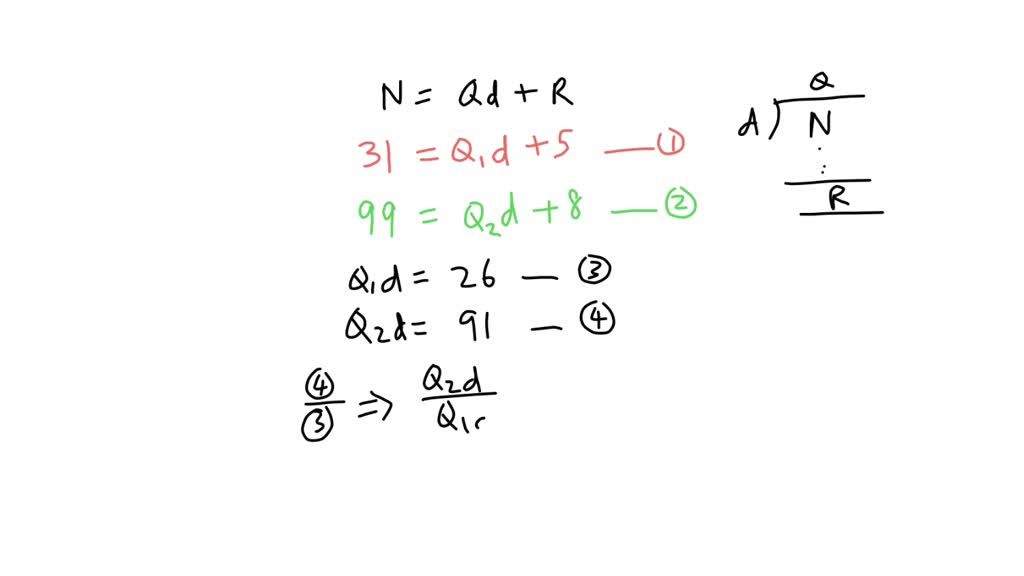 N = Qd + R
31 = Q₁d + 5 — ①
99 = Q₂d + 8 — ②
Q₁d = 26 — ③
Q₂d = 91 — ④
④/③ ⇒ Q₂d/Q₁
Q
d ) N
R